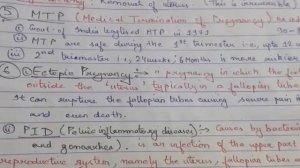 Removal of uterus (This is irreversible)
⑤ MTP (Medical Termination of Pregnancy)
① Govt. of India legalised MTP in 1971
② MTP are safe during the 1st trimester i.e., upto 12
③ 2nd trimester i.e., 24 weeks, 6 months is more riskier
⑥ ① Ectopic Pregnancy :→ "pregnancy in which the
outside the 'uterus' typically in a fallopian tube
It can rupture the fallopian tubes causing severe pain
and even death.
② PID (Pelvic inflammatory diseases) :→ Causes by bacteria
and gonorrhea). is an infection of the upper part
reproductive system, namely the uterus, fallopian tubes